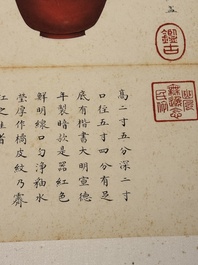 高二寸五分深二寸
口徑五寸四分有足
底有楷書大明宣德
年製暗款是器紅色
鮮明線口勻淨釉水
瑩厚作橘皮紋乃霽
紅之佳者